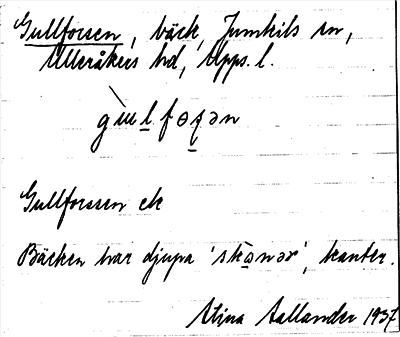 Gullforsen, bäck, Jumkils sn,
Ulleråkers hd, Upps. l.
Gullforsen ek
Bäcken har djupa 'skɑ̱nər', kanter.
Stina Aallander 1937